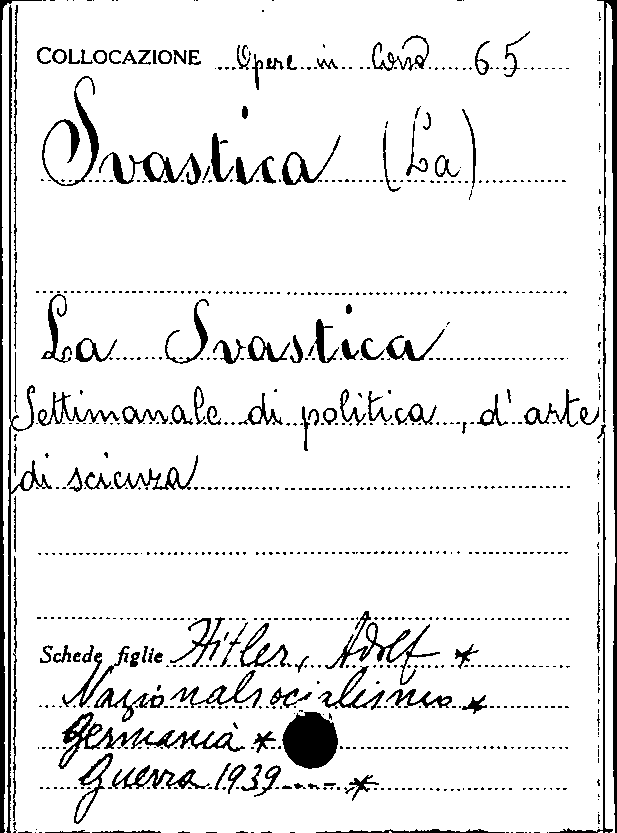 COLLOCAZIONE Opere in Corso 65
Svastica (La)
La Svastica
Settimanale di politica, d'arte,
di scienza
Schede figlie Hitler, Adolf *
Nazionalsocialismo *
Germania *
Guerra 1939---- *